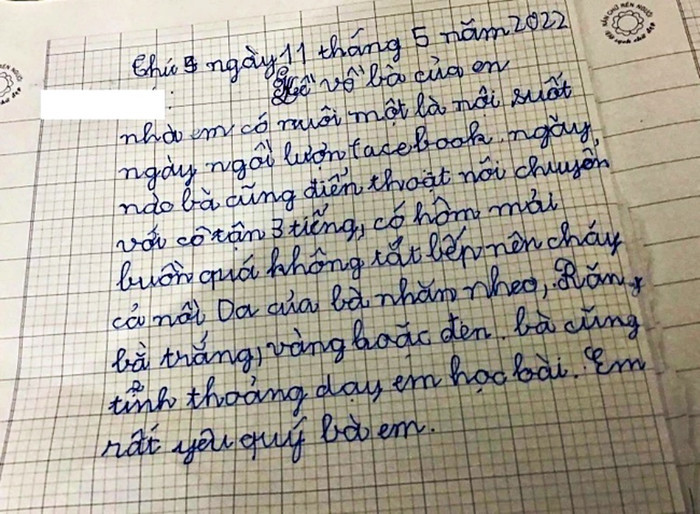 Thứ 5 ngày 11 tháng 5 năm 2022
Kể về bà của em
nhà em có nuôi một là nôi suốt
ngày ngồi lượn facebook. ngày
nào bà cũng điển thoặt nói chuyển
với cô tận 3 tiếng, có hôm mải
buôn quá không tắt bếp nên cháy
cả nồi Da của bà nhăn nheo, Răn
bà trắng, vàng hoặc đen. bà cũng
tỉnh thoảng dạy em học bài. Em
rất yêu quý bà em.